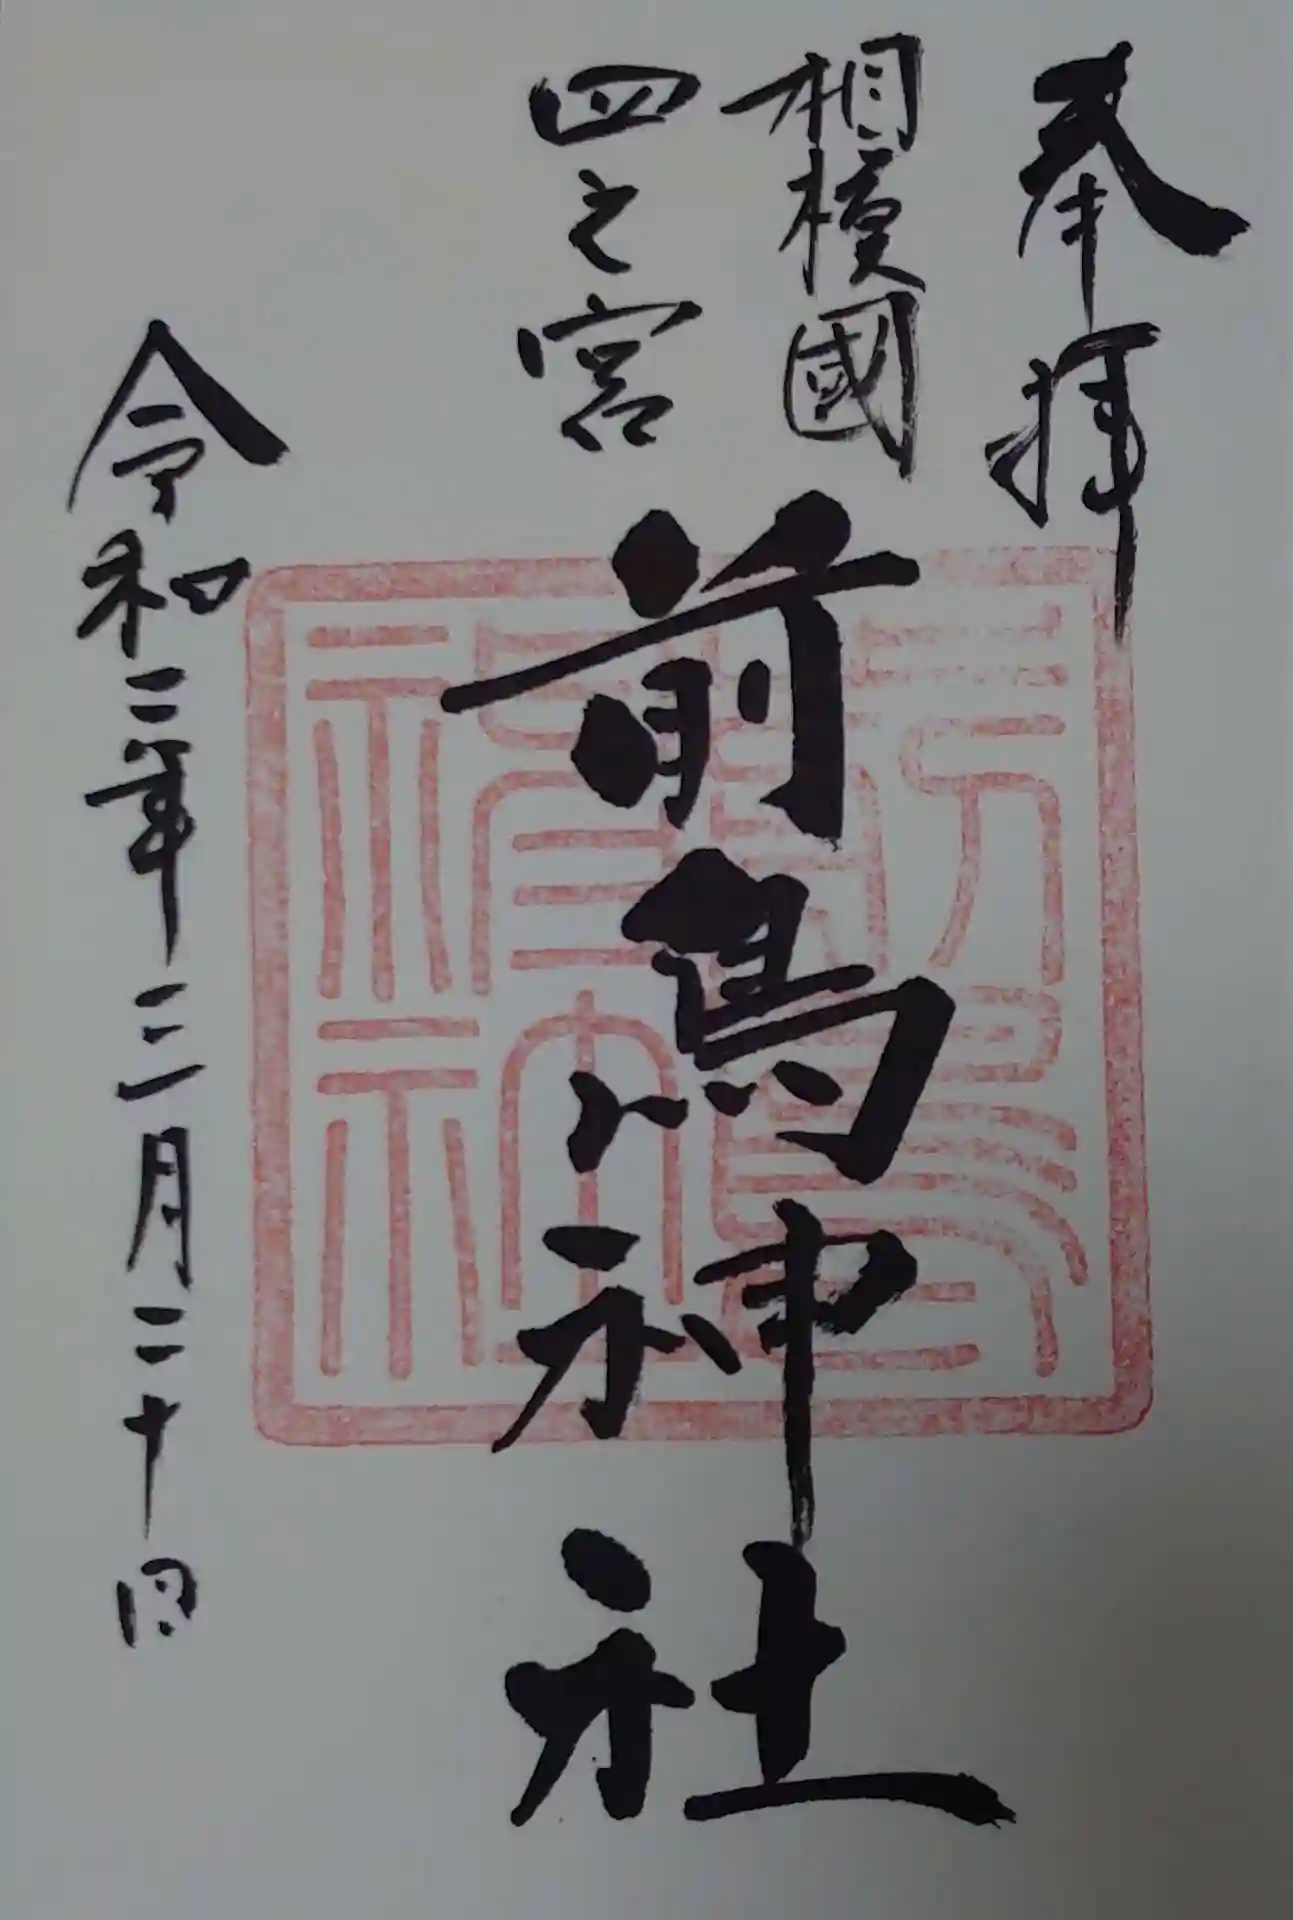 奉拝
相模國
四之宮
前鳥神社
令和二年三月二十日